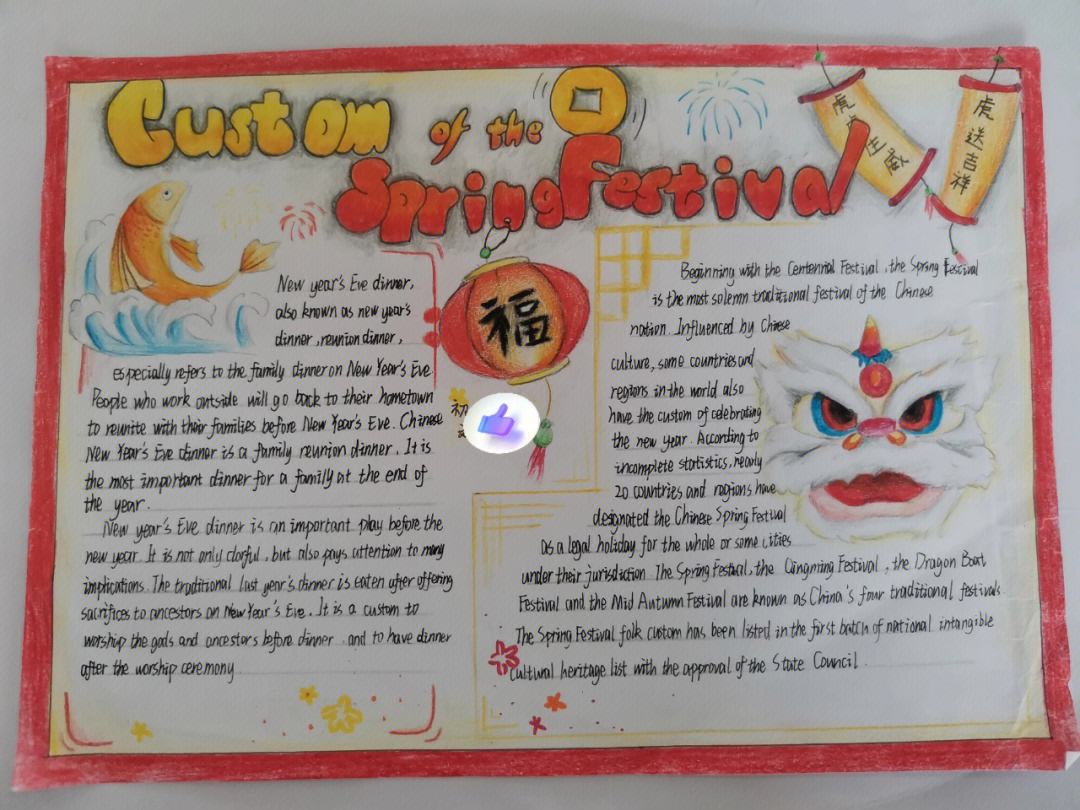 Custom of the
Spring Festival
虎
生威
虎送吉祥
福
初
New year's Eve dinner,
also known as new year's
dinner, reunion dinner,
especially refers to the family dinner on New Year's Eve
People who work outside will go back to their hometown
to reunite with their families before New Year's Eve. Chinese
New Year's Eve dinner is a family reunion dinner. It is
the most important dinner for a family at the end of
the year.
New year's Eve dinner is an important play before the
new year. It is not only clorful, but also pays attention to many
implications. The traditional last year's dinner is eaten after offering
sacrifices to ancestors on New Year's Eve. It is a custom to
worship the gods and ancestors before dinner and to have dinner
after the worship ceremony
Beginning with the Centennial Festival, the Spring Festival
is the most solemn traditional festival of the Chinese
nation. Influenced by Chinese
culture, some countries and
regions in the world also
have the custom of celebrating
the new year. According to
incomplete statistics, nearly
20 countries and regions have
designated the Chinese Spring Festival
as a legal holiday for the whole or some cities
under their jurisdiction. The Spring Festival, the Qingming Festival, the Dragon Boat
Festival and the Mid Autumn Festival are known as China's four traditional festivals.
The Spring Festival folk custom has been listed in the first batch of national intangible
cultural heritage list with the approval of the State Council.